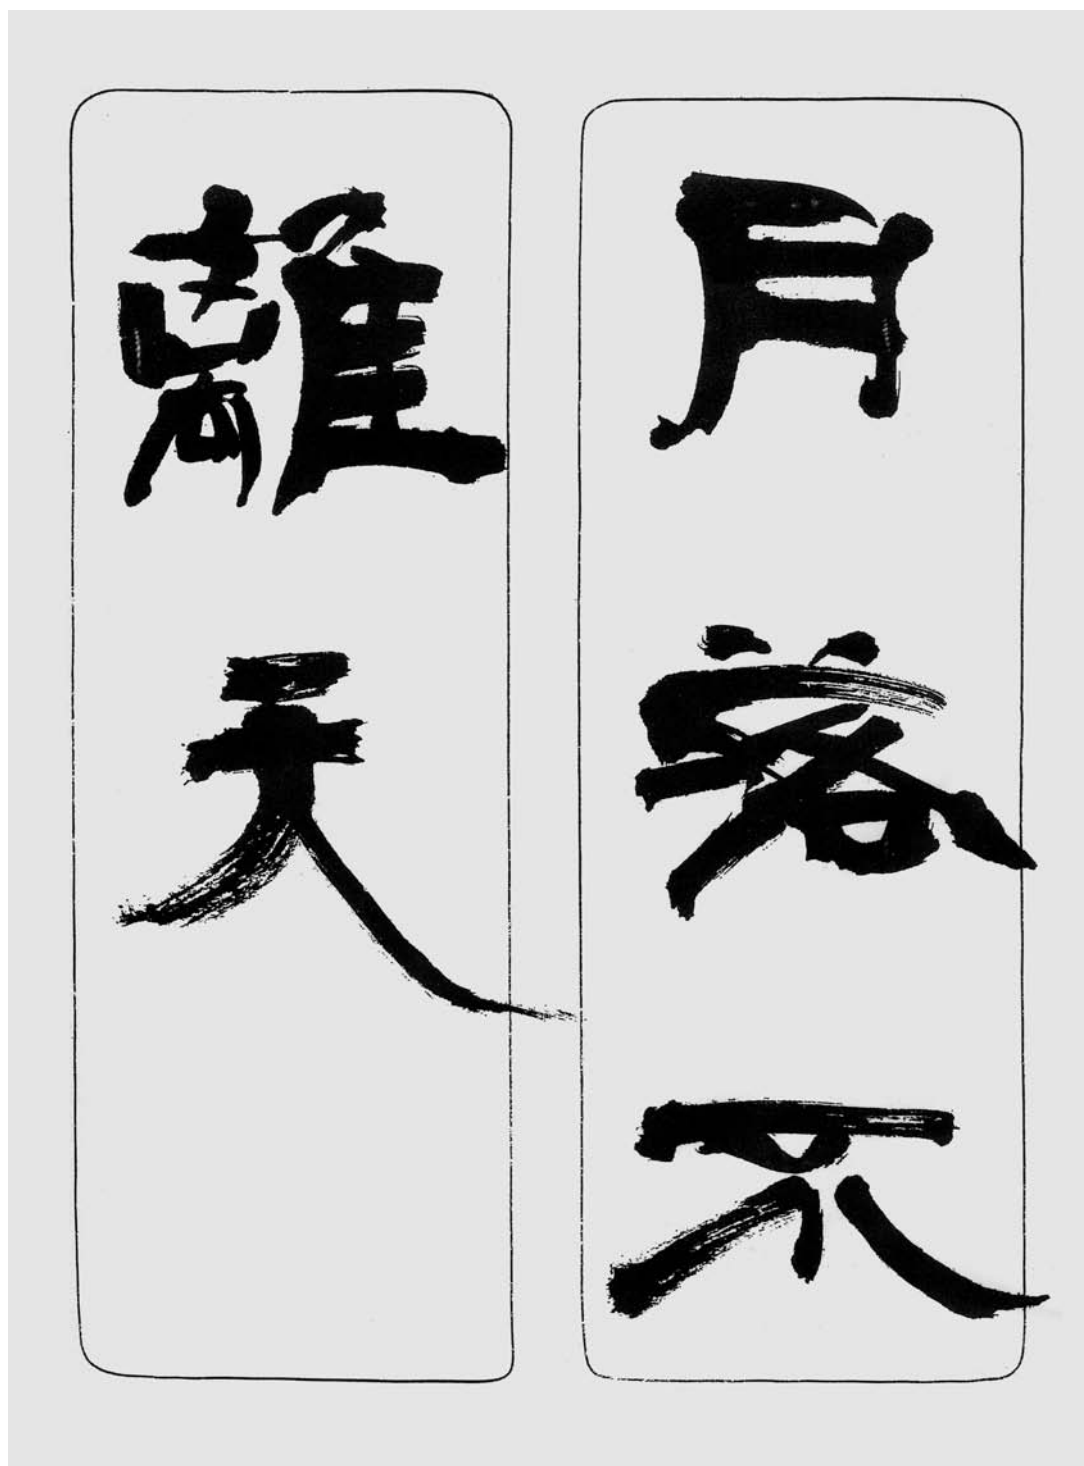 月落不
離天